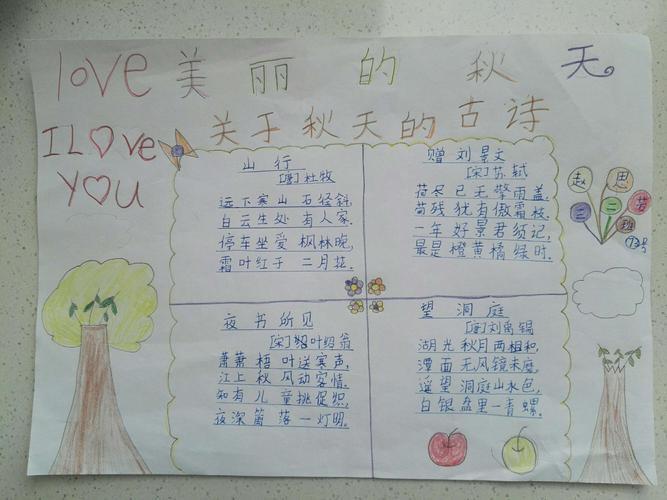 love 美丽的秋天。
I Love
YOU
关于秋天的古诗
山行
[唐]杜牧
远下寒山石径斜,
白云生处有人家.
停车坐爱枫林晚,
霜叶红于二月花.
赠刘景文
[宋]苏轼
荷尽已无擎雨盖,
菊残犹有傲霜枝.
一年好景君须记,
最是橙黄橘绿时.
赵思
三二若
班
夜书所见
[宋]叶绍翁
萧萧梧叶送寒声,
江上秋风动客情.
知有儿童挑促织,
夜深篱落一灯明.
望洞庭
[唐]刘禹锡
湖光秋月两相和,
潭面无风镜未磨.
遥望洞庭山水色,
白银盘里一青螺.